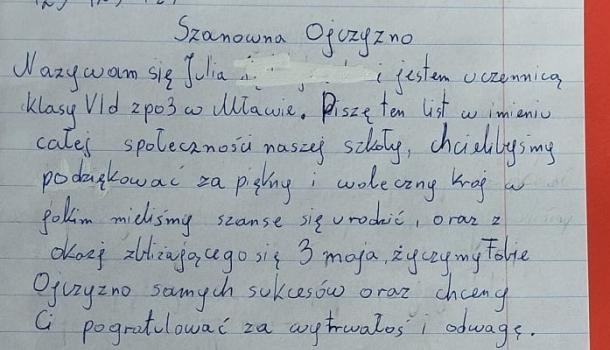 Szanowna Ojczyzno
Nazywam się Julia i jestem uczennicą
klasy VId zpo3 w Mławie. Piszę ten list w imieniu
całej społeczności naszej szkoły, chcielibyśmy
podziękować za piękny i waleczny kraj w
jakim mieliśmy szanse się urodzić, oraz z
okazj zbliżającego się 3 maja, życzymy Tobie
Ojczyzno samych sukcesów oraz chcemy
Ci pogratulować za wytrwałoś i odwagę.